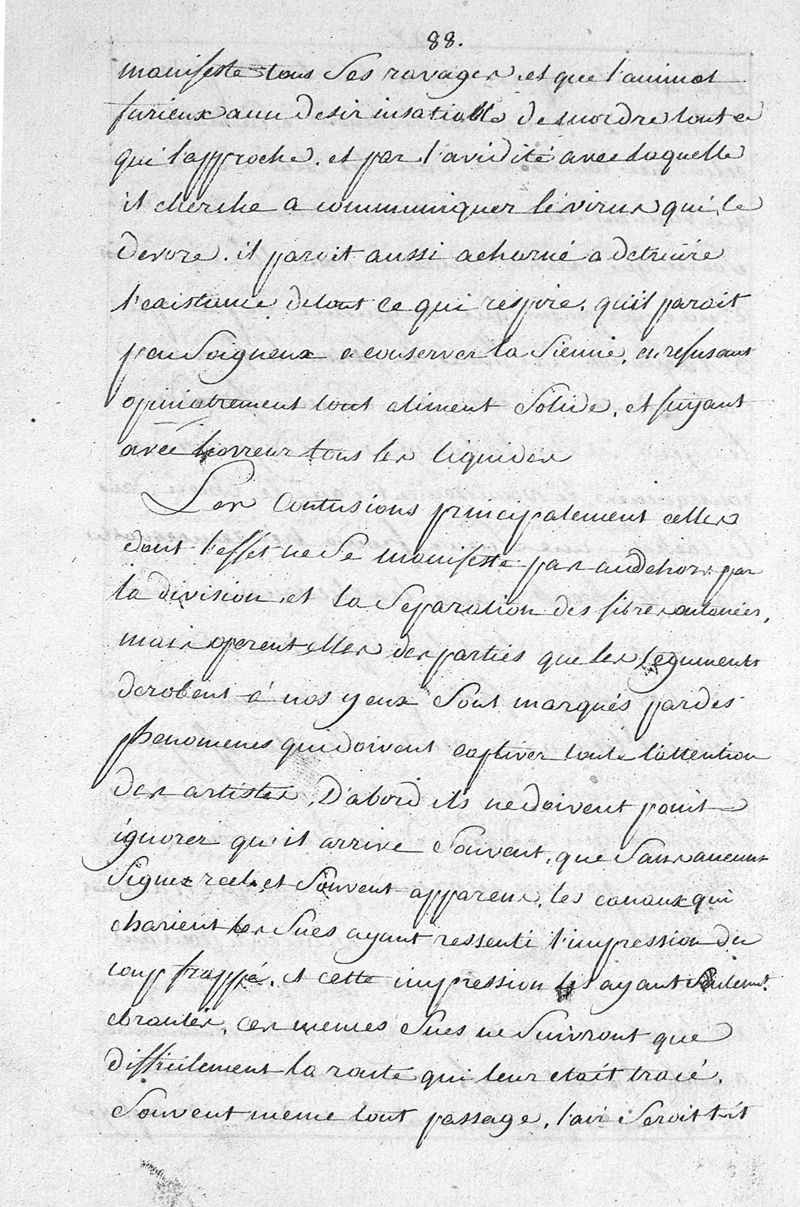 88.
manifeste tous ses ravages, et que l'animal
furieux a un desir insatiable de mordre tout ce
qui l'approche, et par l'avidité avec laquelle
il cherche a communiquer le virus qui le
devore. il paroit aussi acharné a detruire
l'existance de tout ce qui respire, qu'il paroit
peu soigneux a conserver la sienne, en refusant
opiniatrement tout aliment solide, et fuyant
avec horreur tous les liquides
Les Contusions principalement celles
dont l'effet ne se manifeste pas au dehors par
la division et la separation des fibres cutanées,
mais operent elles des parties que les teguments
derobent à nos yeux sont marqués par des
phenomenes qui doivent captiver toute l'attention
des artistes, D'abord ils ne doivent point
ignorer qu'il arrive souvent, que sans aucuns
signes réels, et souvent apparens, les canaux qui
charient les sucs ayant ressenti l'impression du
coup frappé, et cette impression les ayant seulemt.
ebranlés, ces memes sucs ne suivront que
difficilement la route qui leur etait tracé.
Souvent meme tout passage, leur seroit